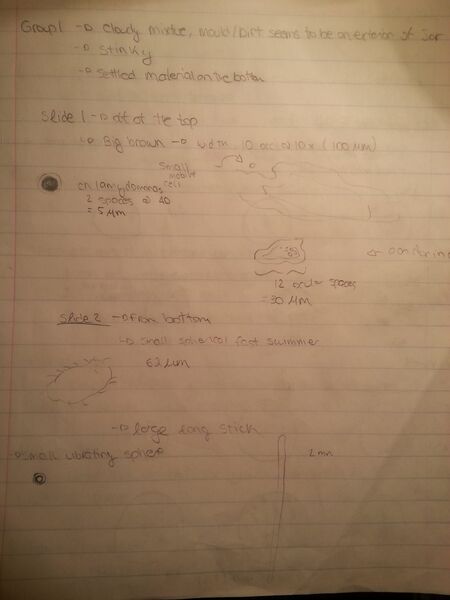 Group1 → Cloudy mixture, mould/Dirt seems to be on exterior of Jar
→ Stinky
→ Settled material on the bottom
Slide 1 → off of the top
Big brown → width 10 @ 10x (100 µm)
small
mobile
cells
chlamydomonas
2 spaces @ 40
= 5 µm
12 spaces
= 30 µm
Slide 2 → From bottom
→ small spherical fast swimmer
62 µm
→ large long stick
→ small vibrating sphere
2 mm